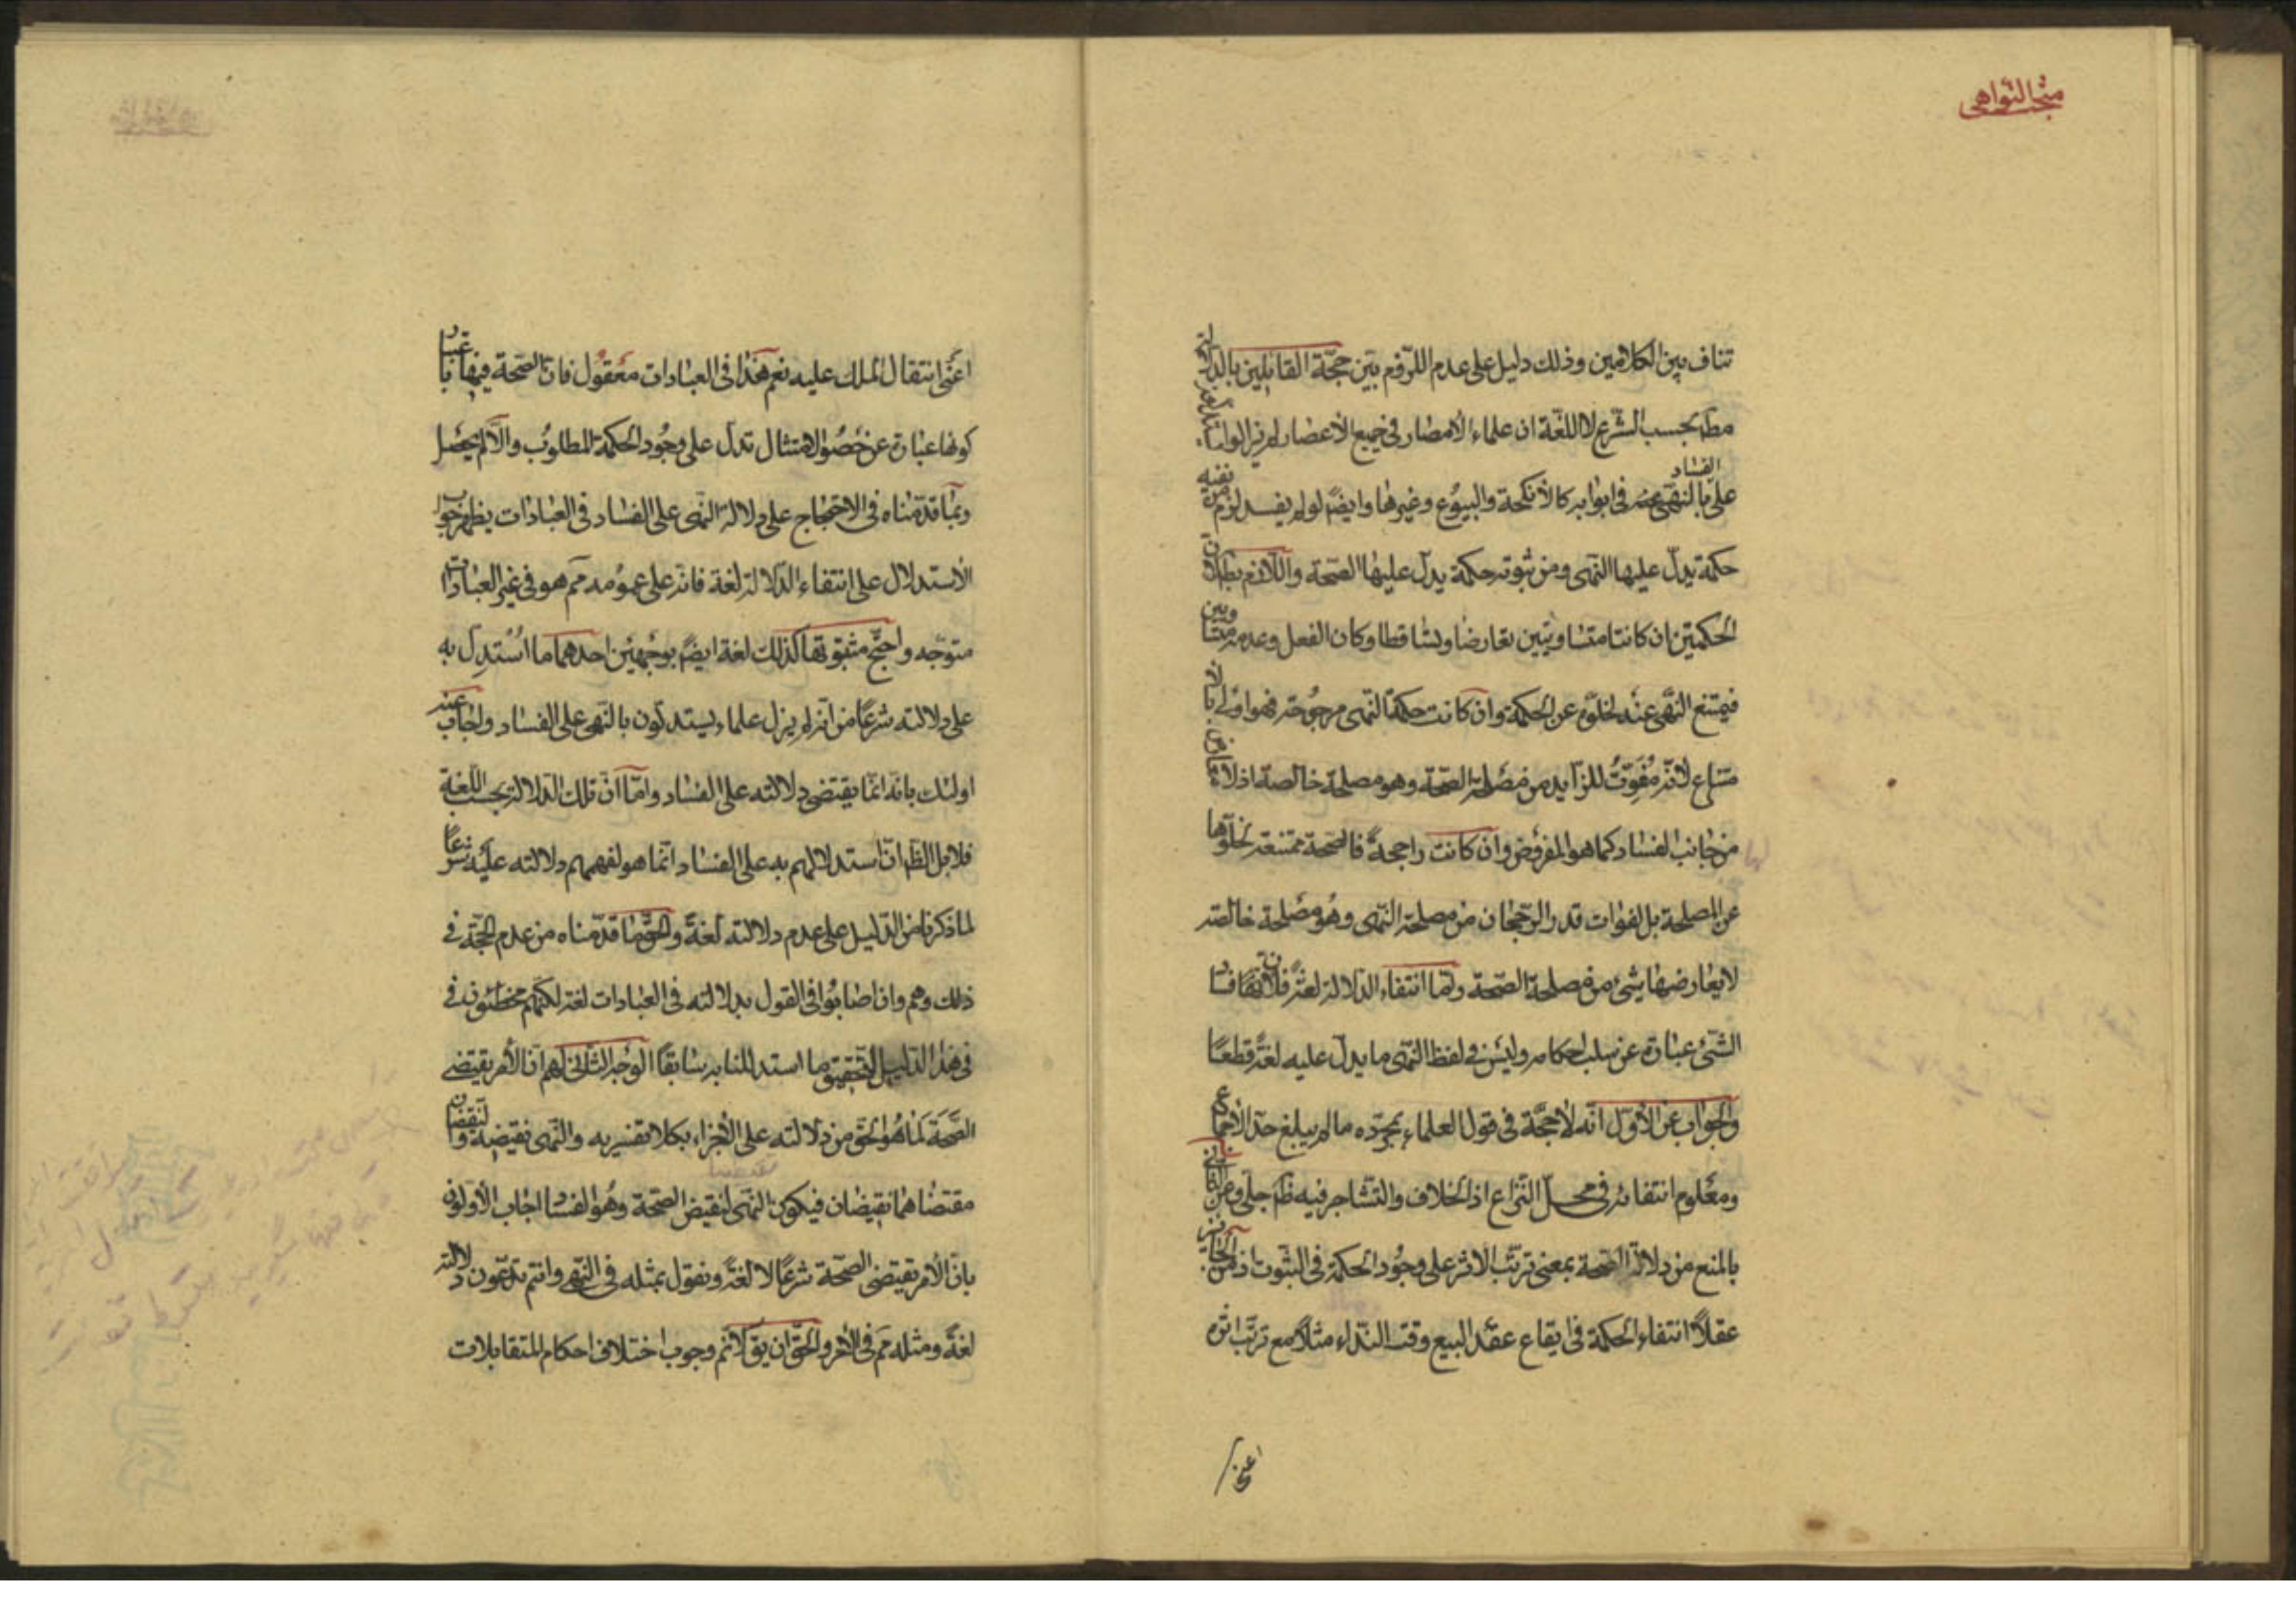 مبحث النواهی
تناف بین الکلامین وذلك دلیل علی عدم اللزوم بین حجّة القائلین بالدلالة
مط بحسب الشّرع لا اللغة ان علماء الامصار فی جمیع الاعصار لم یزالوا
علی الفساد بالنهی فی ابوابه کالأنکحة والبیوع وغیرها وایضً لو لم یفسد لزم من نفیه
حکمة یدلّ علیها النّهی ومن ثبوته حکمة یدلّ علیها الصّحة واللّازم بط لانّ
الحکمتین ان کانتا متساویتین تعارضا وتساقطا وکان الفعل وعدمه متساویین
فیمتنع النّهی عنه لخلوّه عن الحکمة وان کانت حکمة النّهی مرجوحة فهو اولی بالا
متناع لانّه مُفَوِّتٌ للزّاید من مصلحة الصّحّة وهو مصلحة خالصة اذ لا معارض
من جانب الفساد کما هو المفروض وان کانت راجحةً فالصّحة ممتنعة لخلوّها
عن المصلحة بل لفوات قدر الرّجحان من مصلحة النّهی وهُو مصلحة خالصة
لا یعارضها شیء من مصلحة الصّحة وامّا انتفاء الدّلالة لغةً فلانّ فساد
الشّیء عبارة عن سلب احکامه ولیس فی لفظ النّهی ما یدلّ علیه لغةً قطعاً
والجواب عن الأوّل انّه لا حجّة فی قول العلماء بمجرّده ما لم یبلغ حدّ الأجماع
ومعلوم انتفائه فی محلّ النّزاع اذ الخلاف والتّشاجر فیه ظ جلی وعن الثانی
بالمنع من دلالة الصّحة بمعنی ترتّب الاثر علی وجُود الحکمة فی الثبوت اذ من الجائز
عقلاً انتفاء الحکمة فی ایقاع عقد البیع وقت النّداء مثلاً مع ترتّب اثره
اعنی
اعنی انتقال الملك علیه نعم هذا فی العبادات معقول فانّ الصّحة فیها باعتبار
کونها عبارة عن حصُول الامتثال تدلّ علی وجُود الحکمة المطلوب والّا لم یحصل
وبما قدّمناه فی الاحتجاج علی دلالة النّهی علی الفساد فی العبادات یظهر جواب
الأستدلال علی انتفاء الدّلالة لغة فانّه علی عمومه مم هو فی غیر العبادات
متوجّه واحتجّ مثبتوتها کذلك لغة ایضً بوجهین احدهما ما استُدلّ به
علی دلالته شرعًا من انّه لم یزل علماء یستدلّون بالنّهی علی الفساد واجاب عنه
اولئك بانّه انّما یقتضی دلالته علی الفساد وامّا انّ تلك الدّلالة بحسب اللّغة
فلا بل الظّ انّ استدلالهم به علی الفساد انّما هو لفهمهم دلالته علیه شرعًا
لما ذکرنا من الدّلیل علی عدم دلالته لغةً والحقّ ما قدّمناه من عدم الحجّة فی
ذلك وهم وان اصابُوا فی القول بدلالته فی العبادات لغة لکنّهم مخطئون فی
فی هذا الدّلیل والتحقیق ما استدللنا به سابقًا الوجه الثانی لهم انّ الأمر یقتضی
الصّحة لما هُو الحقّ من دلالته علی الأجزاء بکلا تفسیریه والنّهی نقیضه والنّقیضان
مقتضاهما نقیضان فیکون النّهی لنقیض الصّحة وهُو الفساد اجاب الأوّلون
بانّ الأمر یقتضی الصّحّة شرعًا لا لغةً ونقول بمثله فی النّهی وانتم تدّعون دلالته
لغةً ومثله مم فی الأمر والحقّ ان یق لا نّم وجوب اختلاف احکام المتقابلات